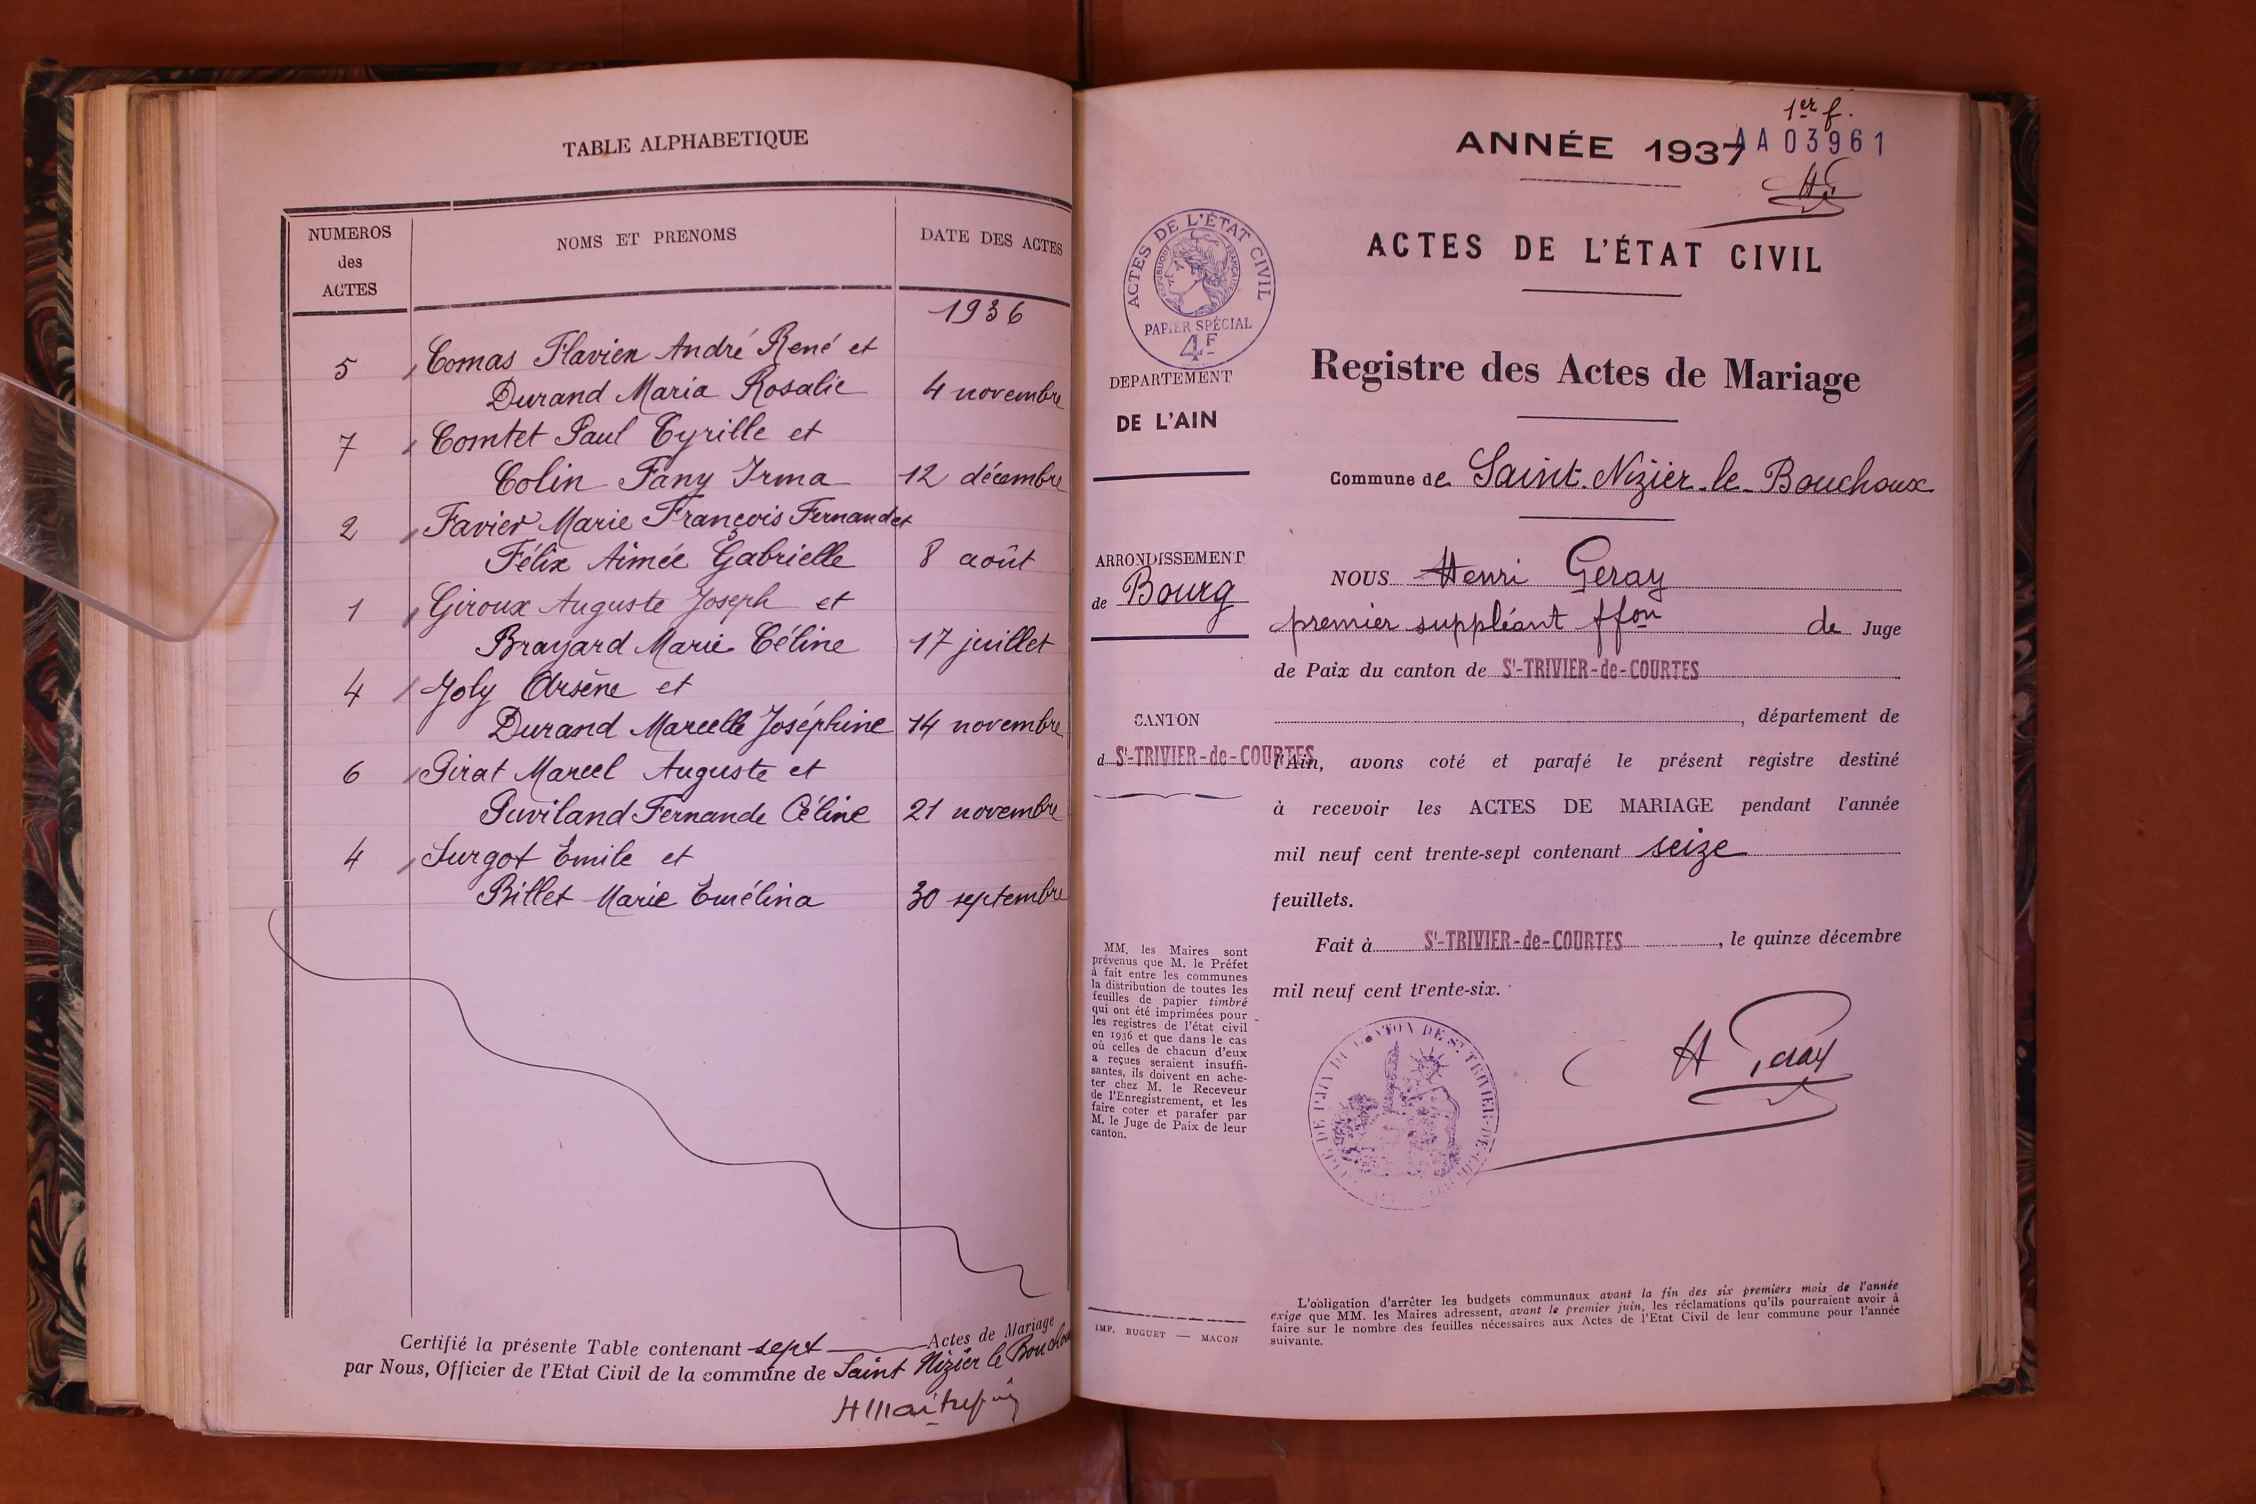 TABLE ALPHABETIQUE
NUMEROS
des
ACTES
NOMS ET PRENOMS
DATE DES ACTES
1936
5 Comas Flavien André René et
Durand Maria Rosalie 4 novembre
7 Comtet Paul Cyrille et
Colin Fany Irma 12 décembre
2 Favier Marie François Fernand et
Félix Aimée Gabrielle 8 août
1 Giroux Auguste Joseph et
Brayard Marie Céline 17 juillet
4 Joly Arsène et
Durand Marcelle Joséphine 14 novembre
6 Pirat Marcel Auguste et
Puviland Fernande Céline 21 novembre
4 Surgot Emile et
Billet Marie Emélina 30 septembre
Certifié la présente Table contenant sept Actes de Mariage
par Nous, Officier de l'Etat Civil de la commune de Saint Nizier le Bouchoux
1er f.
ANNÉE 1937
AA03961
ACTES DE L'ÉTAT CIVIL
ACTES DE L'ÉTAT CIVIL
RÉPUBLIQUE FRANÇAISE
PAPIER SPÉCIAL
4F
DEPARTEMENT
DE L'AIN
Registre des Actes de Mariage
Commune de Saint-Nizier-le-Bouchoux
ARRONDISSEMENT
de Bourg
NOUS Henri Geray
premier suppléant ffon de Juge
de Paix du canton de St-TRIVIER-de-COURTES
CANTON
d St-TRIVIER-de-COURTES
, département de
l'Ain, avons coté et parafé le présent registre destiné
à recevoir les ACTES DE MARIAGE pendant l'année
mil neuf cent trente-sept contenant seize
feuillets.
Fait à St-TRIVIER-de-COURTES, le quinze décembre
mil neuf cent trente-six.
MM. les Maires sont
prévenus que M. le Préfet
à fait entre les communes
la distribution de toutes les
feuilles de papier timbré
qui ont été imprimées pour
les registres de l'état civil
en 1936 et que dans le cas
où celles de chacun d'eux
a reçues seraient insuffi-
santes, ils doivent en ache-
ter chez M. le Receveur
de l'Enregistrement, et les
faire coter et parafer par
M. le Juge de Paix de leur
canton.
H Geray
IMP. BUGUET — MACON
L'obligation d'arrêter les budgets communaux avant la fin des six premiers mois de l'année
exige que MM. les Maires adressent, avant le premier juin, les réclamations qu'ils pourraient avoir à
faire sur le nombre des feuilles nécessaires aux Actes de l'Etat Civil de leur commune pour l'année
suivante.